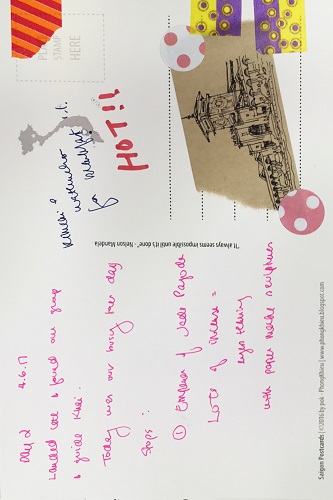 PLACE
STAMP
HERE
HOT!!
for
"It always seems impossible until it's done" - Nelson Mandela
Day 2 4.6.17
Landed late & found our group
& guide Khai.
Today was our busy tour day
Stops:
① Emperor of Jade Pagoda
Lots of incense =
eyes tearing
with paper mache sculptures
Saigon Postcards | ©2016 by pok - PhongKhieu | www.phongkhieu.blogspot.com